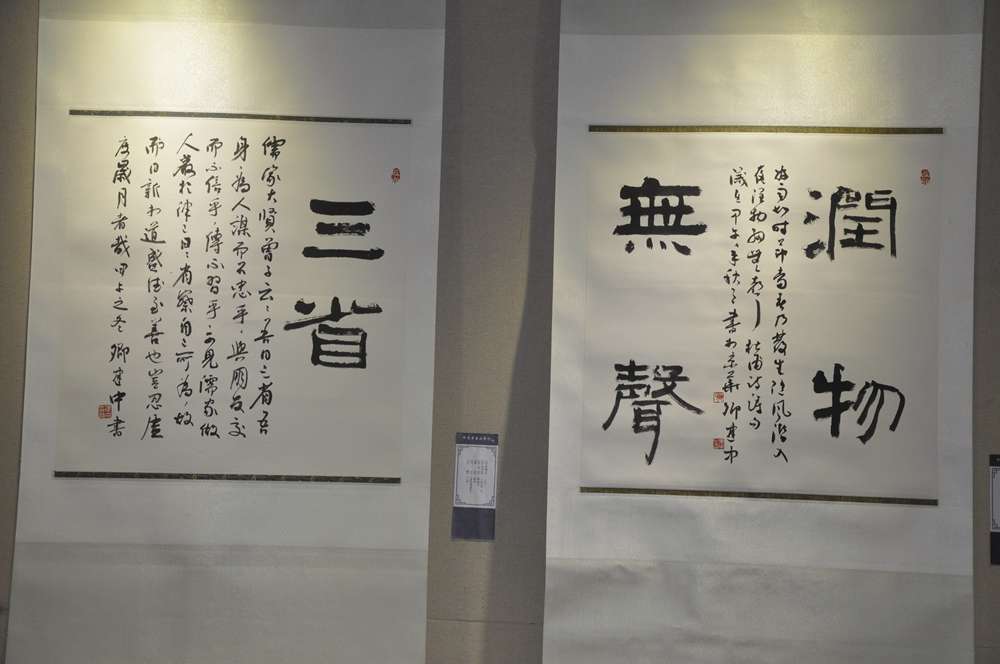 潤物
無聲
好雨知時節當春乃發生隨風潛入
夜潤物細無聲杜甫詩句
歲在甲午年秋日書於京華卿建中
三省
儒家大賢曾子云吾日三省吾
身為人謀而不忠乎與朋友交
而不信乎傳不習乎可見儒家做
人嚴於律己日日省察自己所為故
而日新於道盛德至善也豈忍虛
度歲月者哉甲午之冬卿建中書